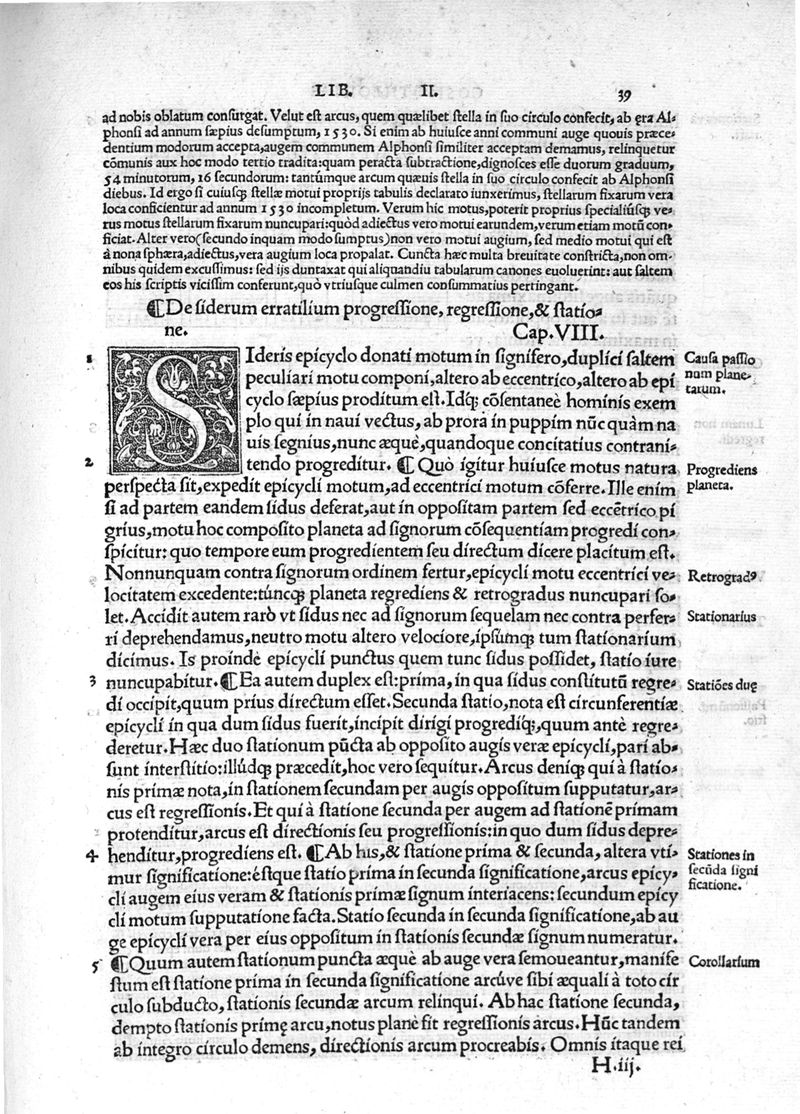 LIB. II. 39
ad nobis oblatum consurgat. Velut est arcus, quem quælibet stella in suo circulo confecit, ab ęra Al-
phonsi ad annum sæpius desumptum, 1530. Si enim ab huiusce anni communi auge quouis præce-
dentium modorum accepta, augem communem Alphonsi similiter acceptam demamus, relinquetur
cōmunis aux hoc modo tertio tradita: quam peracta subtractione, dignosces esse duorum graduum,
54 minutorum, 16 secundorum: tantúmque arcum quæuis stella in suo circulo confecit ab Alphonsi
diebus. Id ergo si cuiusq; stellæ motui proprijs tabulis declarato iunxerimus, stellarum fixarum vera
loca conficientur ad annum 1530 incompletum. Verum hic motus, poterit proprius specialiúsq; ve-
rus motus stellarum fixarum nuncupari: quòd adiectus vero motui earundem, verum etiam motū con-
ficiat. Alter vero (secundo inquam modo sumptus) non vero motui augium, sed medio motui qui est
à nona sphæra, adiectus, vera augium loca propalat. Cuncta hæc multa breuitate constricta, non om-
nibus quidem excussimus: sed ijs duntaxat qui aliquandiu tabularum canones euoluerint: aut saltem
eos his scriptis vicissim conferunt, quò vtriusque culmen consummatius pertingant.
¶De siderum erratilium progressione, regressione, & statio-
ne. Cap. VIII.
1 SIderis epicyclo donati motum in signifero, duplici saltem
Causa passio
peculiari motu componi, altero ab eccentrico, altero ab epi
num plane-
cyclo sæpius proditum est. Idq; cōsentaneè hominis exem
tarum.
plo qui in naui vectus, ab prora in puppim nūc quàm na
uis segnius, nunc æquè, quandoque concitatius contrani-
2 tendo progreditur. ¶ Quò igitur huiusce motus natura
Progrediens
perspecta sit, expedit epicycli motum, ad eccentrici motum cōferre. Ille enim
planeta.
si ad partem eandem sidus deferat, aut in oppositam partem sed eccētrico pi
grius, motu hoc composito planeta ad signorum cōsequentiam progredi con-
spicitur: quo tempore eum progredientem seu directum dicere placitum est.
Nonnunquam contra signorum ordinem fertur, epicycli motu eccentrici ve-
Retrogradꝰ.
locitatem excedente: túncq; planeta regrediens & retrogradus nuncupari so-
let. Accidit autem rarò vt sidus nec ad signorum sequelam nec contra perfer-
Stationarius
ri deprehendamus, neutro motu altero velociore, ipsúmq; tum stationarium
dicimus. Is proindè epicycli punctus quem tunc sidus possidet, statio iure
3 nuncupabitur. ¶Ea autem duplex est: prima, in qua sidus constitutū regre-
Statiōes duę
di occipit, quum prius directum esset. Secunda statio, nota est circunferentiæ
epicycli in qua dum sidus fuerit, incipit dirigi progrediq;, quum antè regre-
deretur. Hæc duo stationum pūcta ab opposito augis veræ epicycli, pari ab-
sunt interstitio: illúdq; præcedit, hoc vero sequitur. Arcus deniq; qui à statio-
nis primæ nota, in stationem secundam per augis oppositum supputatur, ar-
cus est regressionis. Et qui à statione secunda per augem ad stationē primam
protenditur, arcus est directionis seu progressionis: in quo dum sidus depre-
4 henditur, progrediens est. ¶Ab his, & statione prima & secunda, altera vti-
Stationes in
mur significatione: éstque statio prima in secunda significatione, arcus epicy-
secūda signi
cli augem eius veram & stationis primæ signum interiacens: secundum epicy
ficatione.
cli motum supputatione facta. Statio secunda in secunda significatione, ab au
ge epicycli vera per eius oppositum in stationis secundæ signum numeratur.
5 ¶Quum autem stationum puncta æquè ab auge vera semoueantur, manife
Corollarium
stum est statione prima in secunda significatione arcúve sibi æquali à toto cir
culo subducto, stationis secundæ arcum relinqui. Ab hac statione secunda,
dempto stationis primę arcu, notus planè fit regressionis arcus. Hūc tandem
ab integro circulo demens, directionis arcum procreabis. Omnis itaque rei
H. iij.